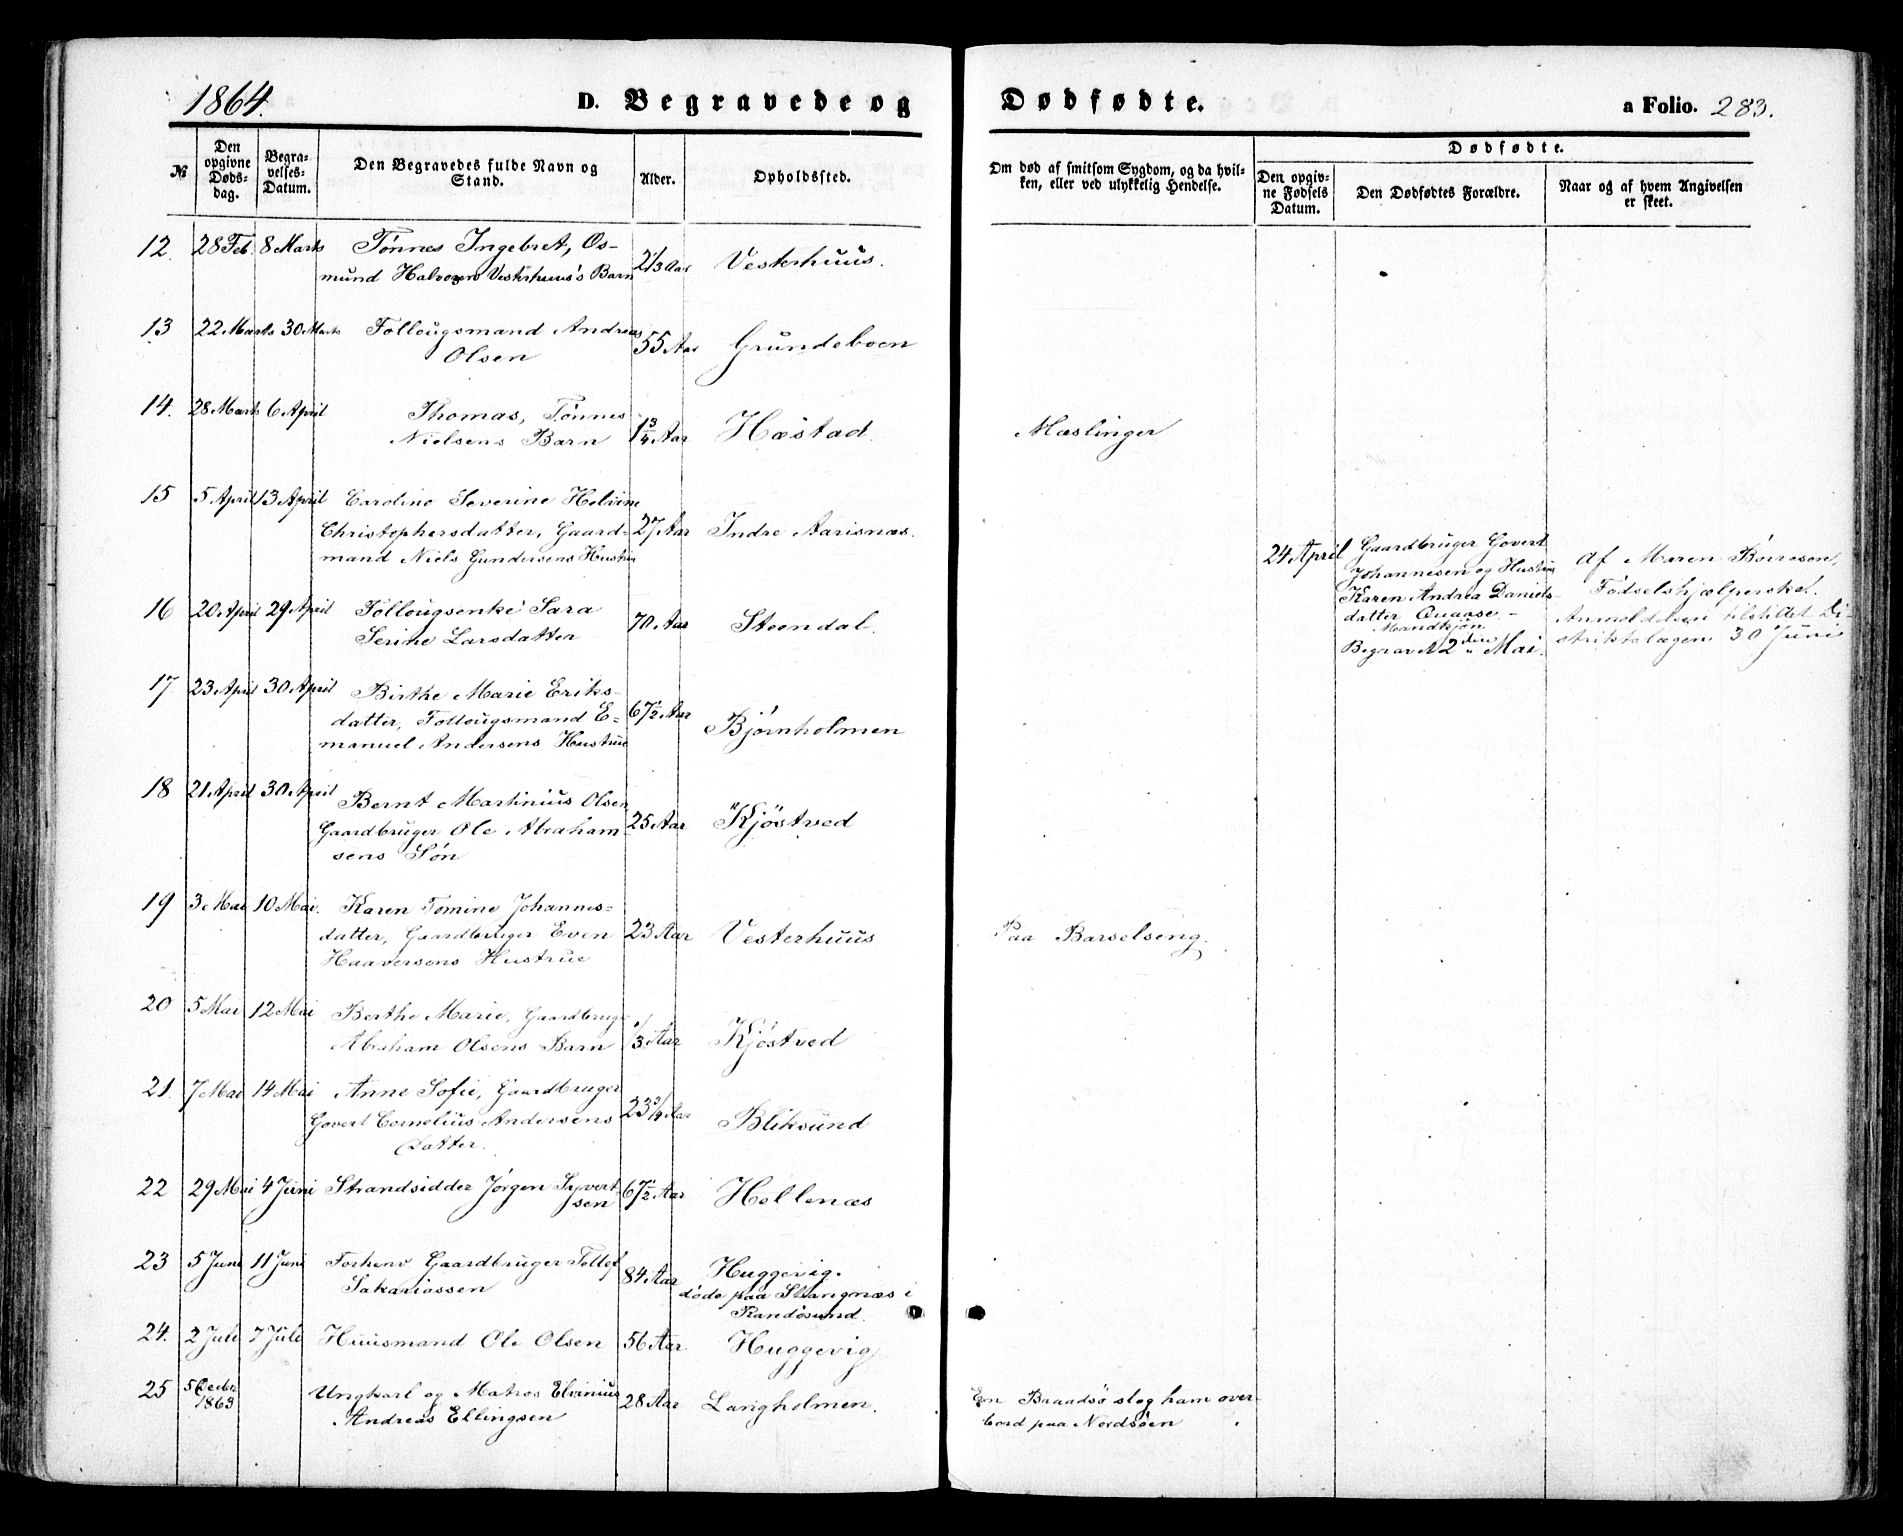 1864.
D. Begravede og
Dødfødte.
a Folio. 283.
№
Den opgivne Døds-dag.
Begra-velses-Datum.
Den Begravedes fulde Navn og Stand.
Alder.
Opholdssted.
Om død af smitsom Sygdom, og da hvil-ken, eller ved ulykkelig Hendelse.
Dødfødte.
Den opgiv-ne Fødsels Datum.
Den Dødfødtes Forældre.
Naar og af hvem Angivelsen er skeet.
12. 28 Feb. 8 Marts Tönnes Ingebret, Os- 2 1/3 Aar Vesterhuus.
mund Halvorsens Vesterhuus's Barn
13 22 Marts 30 Marts Follougsmand Andreas 55 Aar Grundeboen
Olsen
14. 28 Marts 6 April Thomas, Tönnes 1 3/4 Aar Hæstad.
Nielsens Barn
Mæslinger
15 5 April 13 April Caroline Severine Helvine
Christophersdatter, Gaard- 27 Aar Indre Aarisnæs.
mand Niels Gundersens Hustru
24 April Gaardbruger Govert
Johannesen og Hustrue
Karen Andrea Daniels-
datter Qvaase -
Mandkjön
Begravet 2den Mai.
Af Maren Börresen,
Födselshjælperske.
Anmeldelsen tilstillet Di-
striktslægen 30 Juni
16 20 April 29 April Follougsenke Sara 70 Aar Steendal.
Serine Larsdatter
17 23 April 30 April Birthe Marie Eriks-
datter, Follougsmand E- 67 1/2 Aar Bjørnholmen
manuel Andersens Hustrue
18 21 April 30 April Bernt Martinius Olsen
Gaardbruger Ole Abraham- 25 Aar Kjöstved
sens Søn
19 3 Mai 10 Mai. Karen Tomine Johannes-
datter, Gaardbruger Even 23 Aar Vesterhuus
Haaversens Hustrue
Paa Barselseng.
20 5 Mai 12 Mai Berthe Marie, Gaardbruger
Abraham Olsens Barn 1/3 Aar Kjöstved
21. 7 Mai 14 Mai Anne Sofie, Gaardbruger
Govert Cornelius Andersens 23 3/4 Aar Bliksund
Datter.
22 29 Mai 4 Juni Strandsidder Jörgen Syvert- 67 1/2 Aar Hellenæs
sen
23 5 Juni 11 Juni Forhenv Gaardbruger Tellef 84 Aar Huggevig.
Sakariassen
döde paa Stangnæs i
Randösund.
24. 2 Juli 7 Juli Huusmand Ole Olsen 56 Aar Huggevig
25 5 Decbr 1863 Ungkarl og Matros Elvinius 28 Aar Langholmen.
Andreas Ellingsen
En Braadsö slog ham over-
bord paa Nordsöen